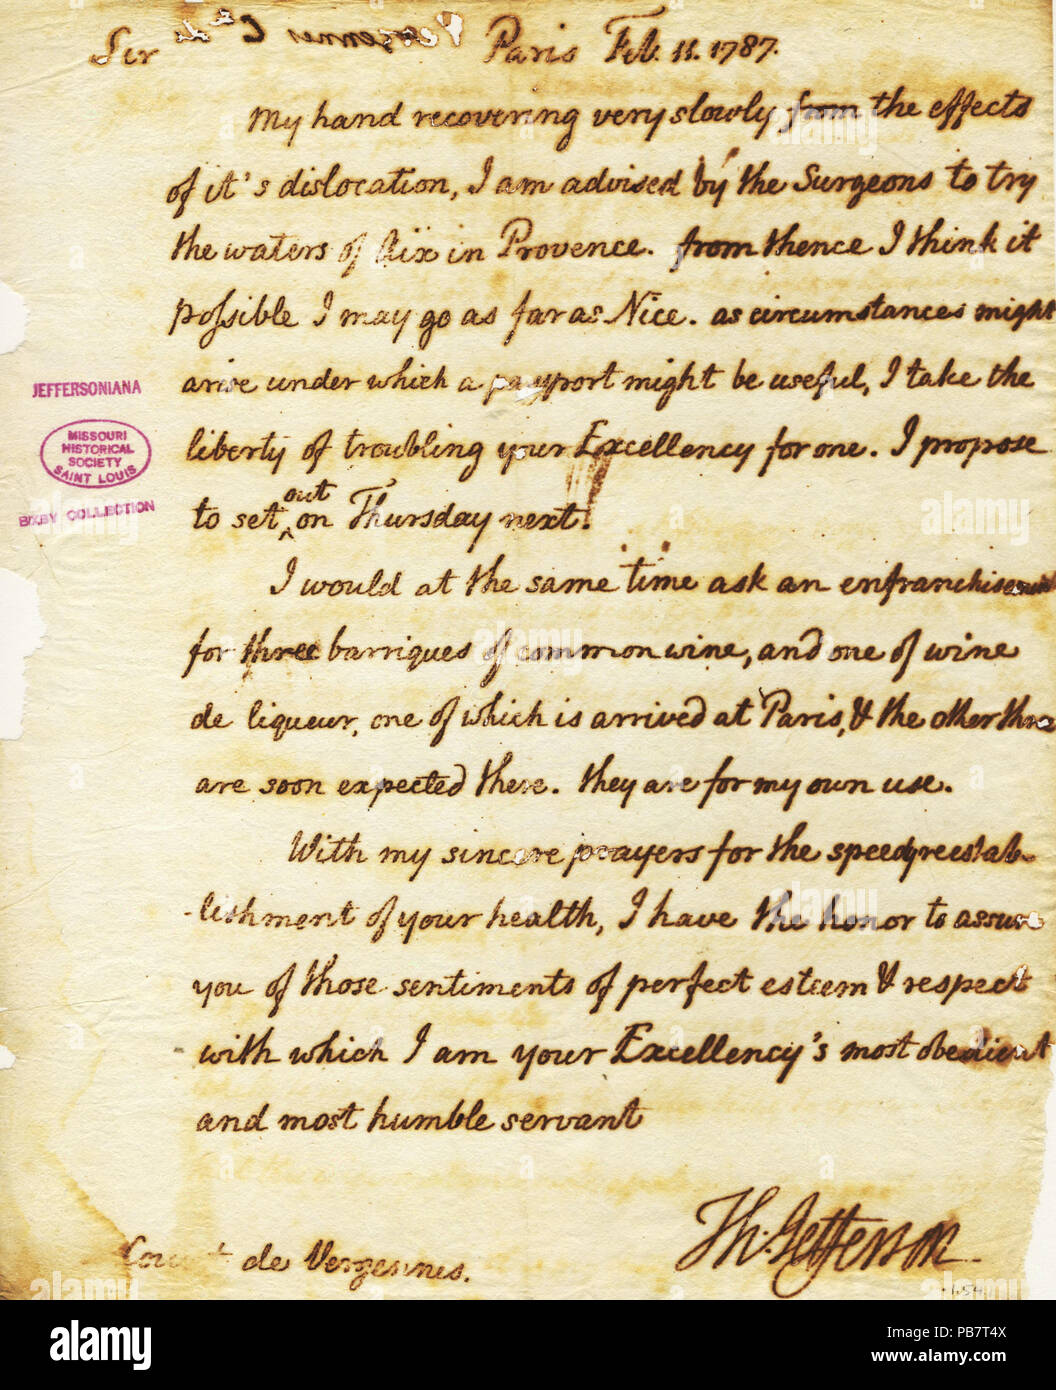 Sir Paris Feb. 11. 1787.
My hand recovering very slowly from the effects
of it's dislocation, I am advised by the Surgeons to try
the waters of Aix in Provence. from thence I think it
possible I may go as far as Nice. as circumstances might
arise under which a passport might be useful, I take the
liberty of troubling your Excellency for one. I propose
to set out on Thursday next.
I would at the same time ask an enfranchisement
for three barriques of common wine, and one of wine
de liqueur, one of which is arrived at Paris, & the other three
are soon expected there. they are for my own use.
With my sincere prayers for the speedy reestab-
-lishment of your health, I have the honor to assure
you of those sentiments of perfect esteem & respect
with which I am your Excellency's most obedient
and most humble servant
Th: Jefferson
Count de Vergennes.
JEFFERSONIANA
MISSOURI
HISTORICAL
SOCIETY
SAINT LOUIS
BIXBY COLLECTION
alamy
Image ID: PB7T4X
www.alamy.com